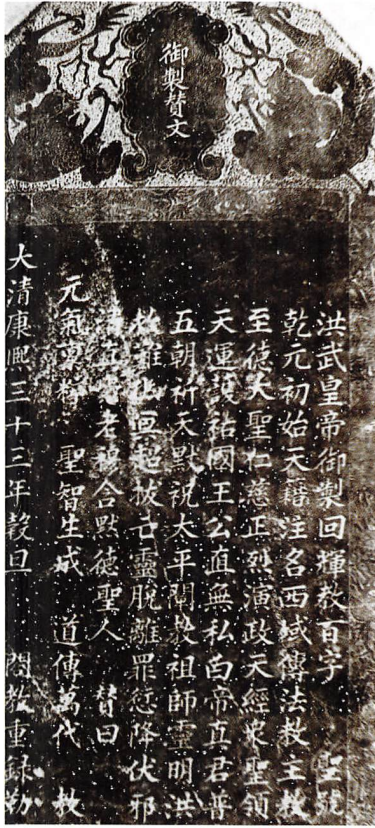 御製賛文
洪武皇帝御製回輝教百字 聖號
乾元初始天籍注名西域傳法教主教
至德大聖仁慈正烈演政天經衆聖領
天運護祐國王公直無私白帝真君普
五朝祈天默祝太平開教祖師靈明洪
救難出冥超拔亡靈脫離罪愆降伏邪
清真老穆含默德聖人 賛曰
元氣 聖智生成 道傳萬代 教
大清康熙三十三年穀旦 閤教重録勒